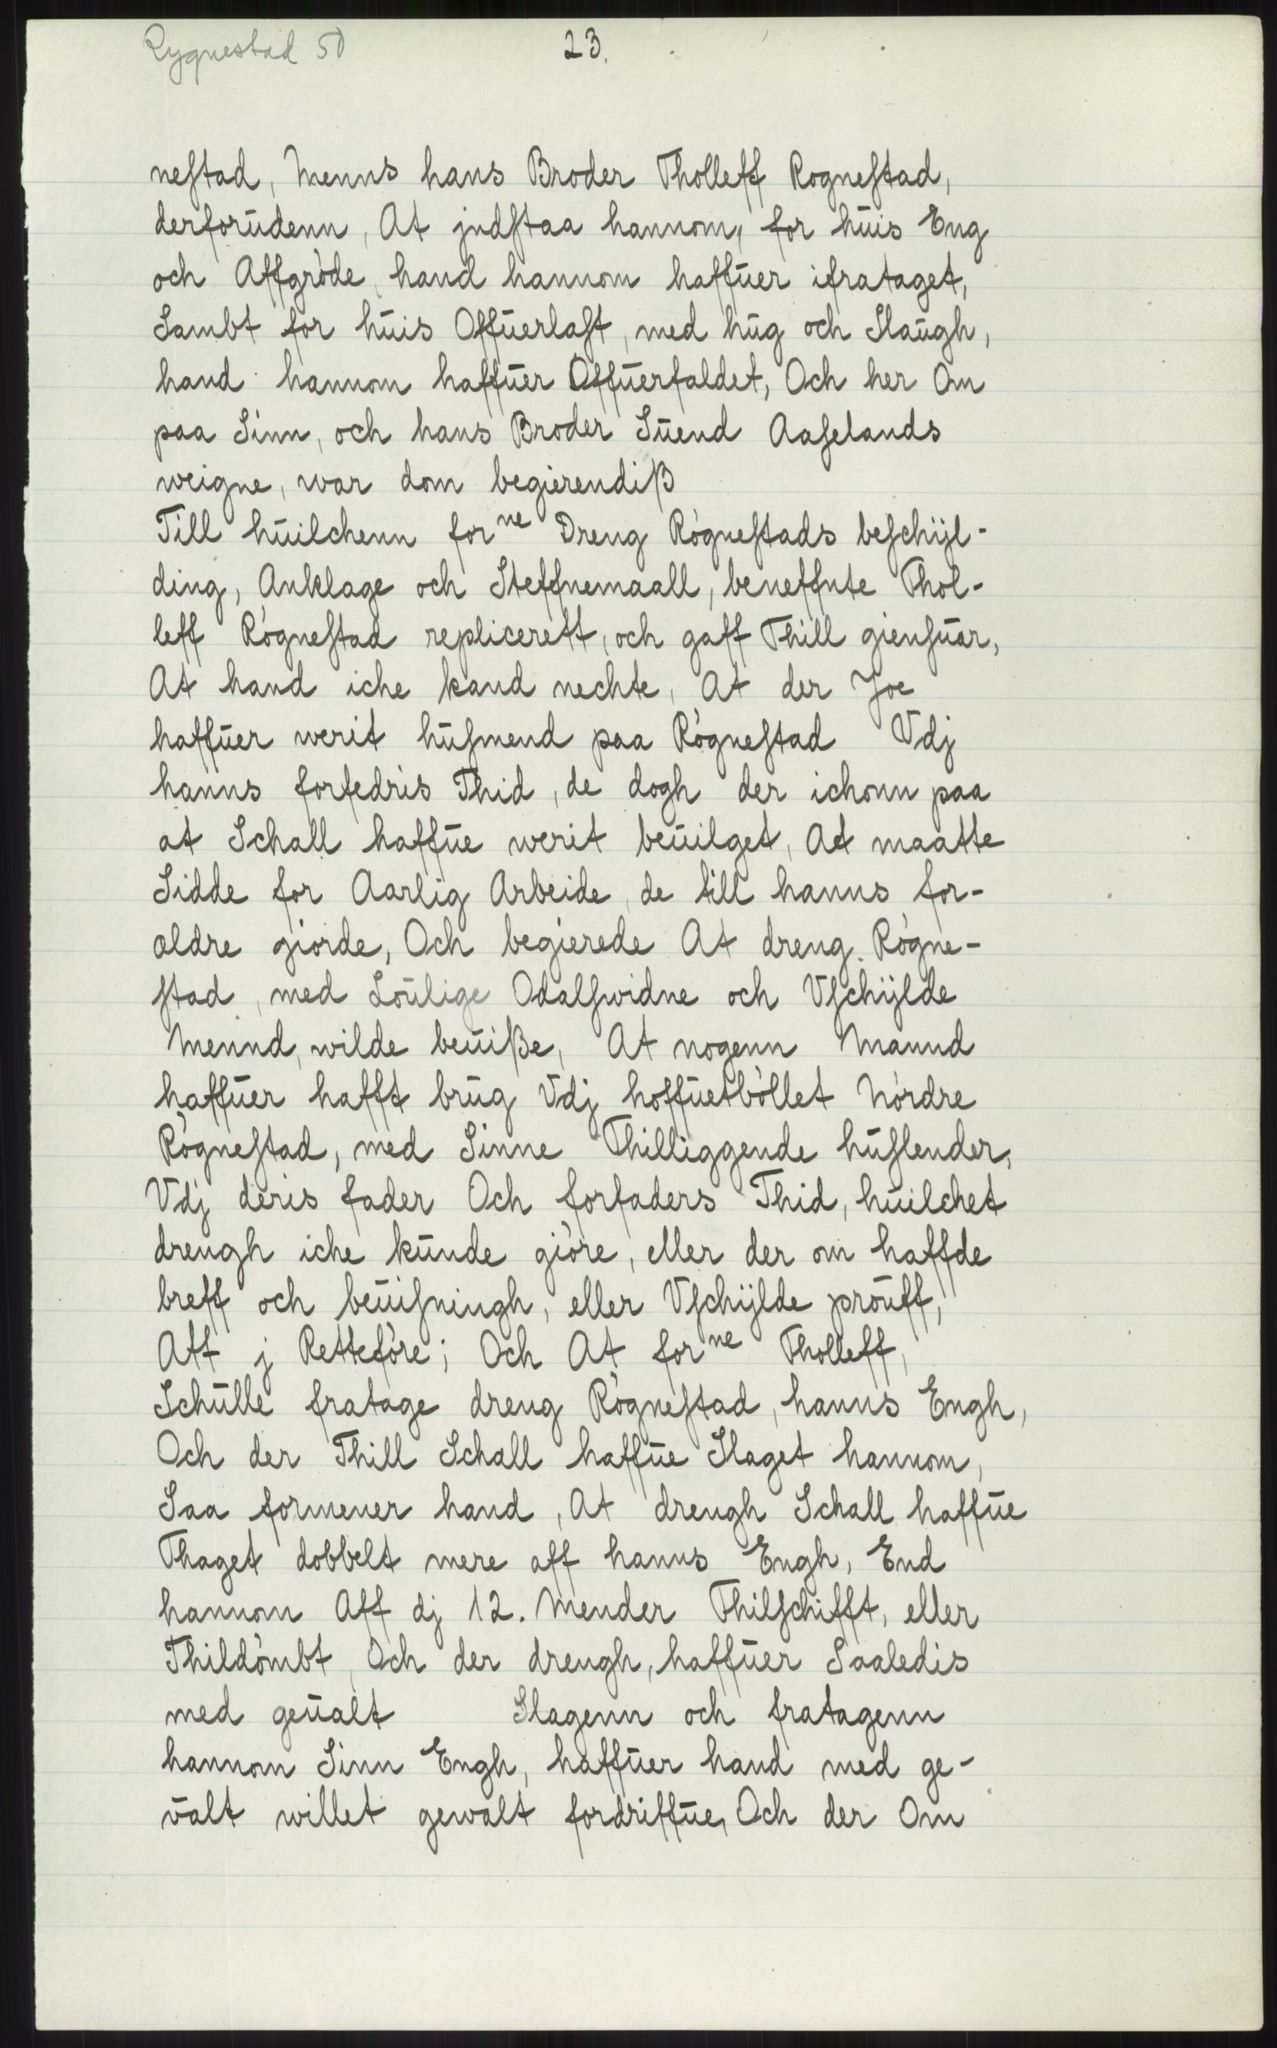 Rygnestad 50
23.
nestad, Menns hans Broder Tholleff Rogneſtad,
derforudenn, At jndſtaa hannom, for huis Eng
och Affgrøde hand hannom haffuer ifrataget,
Sambt for huis Offuerlaſt, med hug och Slaugh,
hand hannom haffuer Offuerfaldet, Och her Om
paa Sinn, och hans Broder Suend Aaſelands
weigne, war dom begierendiß
Till huilchenn forne Dreng Røgneſtads beſchÿl-
ding, Anklage och Steffnemaall, beneffnte Thol-
leff Røgneſtad replicerett, och gaff Thill gienſuar,
At hand iche kand nechte, At der Joe
haffuer werit huſmend paa Røgneſtad Vdj
hanns forfedris Thid, de dogh der ichonn paa
at Schall haffue werit beuilget, At maatte
Sidde for Aarlig Arbeide de till hanns for-
ældre giorde, Och begierede At dreng Røgne-
ſtad, med Loulige Odalſwidne och Vſchÿlde
Mennd, wilde beuiße, At nogenn Mannd
haffuer hafft brug Vdj hoffuetbøllet Nordre
Røgneſtad, med Sinne Thilliggende huſlender,
Vdj deris fader Och forfaders Thid, huilchet
drengh iche kunde giøre, eller der om haffde
breff och beuiſningh, eller Vſchÿlde prouff,
Att j Retteføre; Och At forne Tholleff,
Schulle fratage dreng Røgneſtad, hanns Engh,
Och der Thill Schall haffue Slaget hannom,
Saa formener hand, At drengh Schall haffue
Thaget dobbelt mere aff hanns Engh, End
hannom Aff dj 12. Mender Thilſchifft, eller
Thildømbt, Och der drengh, haffuer Saaledis
med geualt Slagenn och fratagenn
hannom Sinn Engh, haffuer hand med ge-
valt willet gewalt fordriffue, Och der Om